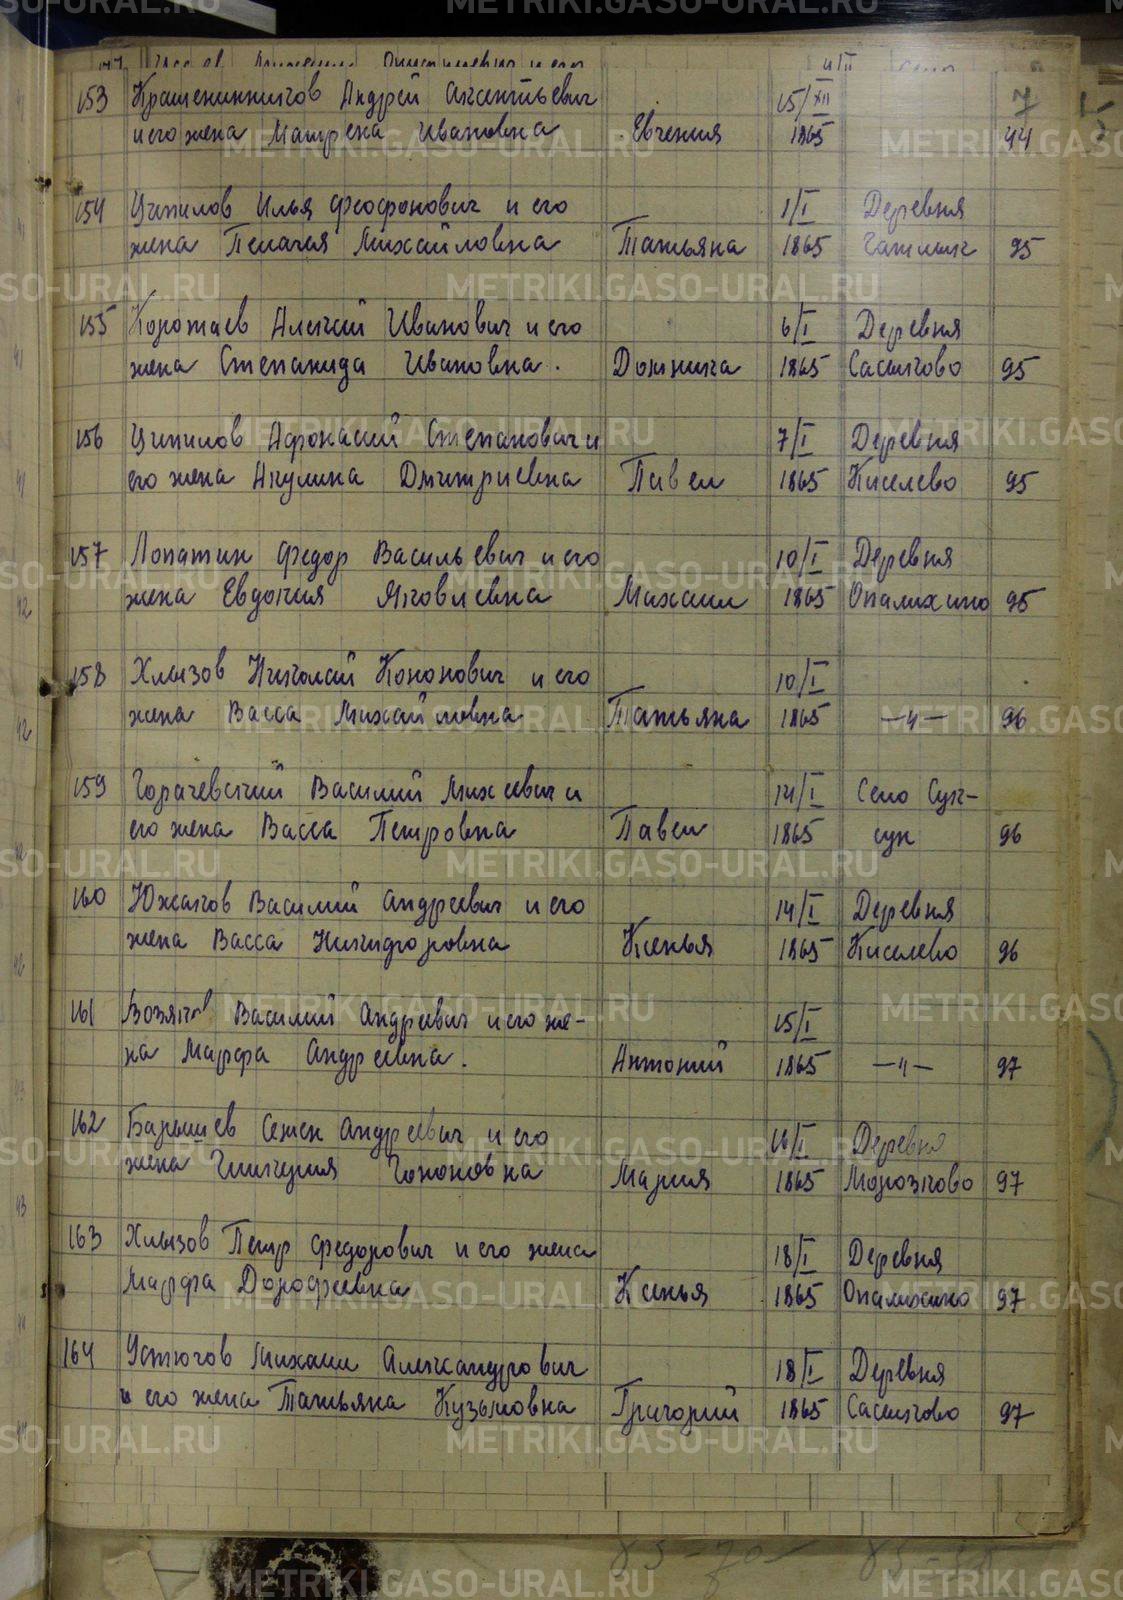 7
153 Крашенинников Андрей Аксентьевич 15/XII
и его жена Матрена Ивановна Евгения 1865 94
154 Ципилов Илья Феофонович и его 1/I Деревня
жена Пелагея Михайловна Татьяна 1865 95
155 Коротаев Алексей Иванович и его 6/I Деревня
жена Степанида Ивановна. Домника 1865 Сасыково 95
156 Ципилов Афонасий Степанович и 7/I Деревня
его жена Акулина Дмитриевна Павел 1865 Киселево 95
157 Лопатин Федор Васильевич и его 10/I Деревня
жена Евдокия Яковлевна Михаил 1865 Опалихино 95
158 Хлызов Николай Кононович и его 10/I
жена Васса Михайловна Татьяна 1865 —"— 96
159 Горачевский Василий Михеевич и 14/I Село Сук-
его жена Васса Петровна Павел 1865 сун 96
160 Южаков Василий Андреевич и его 14/I Деревня
жена Васса Никифоровна Ксенья 1865 Киселево 96
161 Василий Андреевич и его же- 15/I
на Марфа Андреевна. Антоний 1865 —"— 97
162 Барышев Семен Андреевич и его 16/I Деревня
жена Гликерия Кононовна Мария 1865 Морозково 97
163 Хлызов Петр Федорович и его жена 18/I Деревня
Марфа Дорофеевна Ксенья 1865 Опалихино 97
164 Устюгов Михаил Александрович 18/I Деревня
и его жена Татьяна Кузьмовна Григорий 1865 Сасыково 97
METRIKI.GASO-URAL.RU